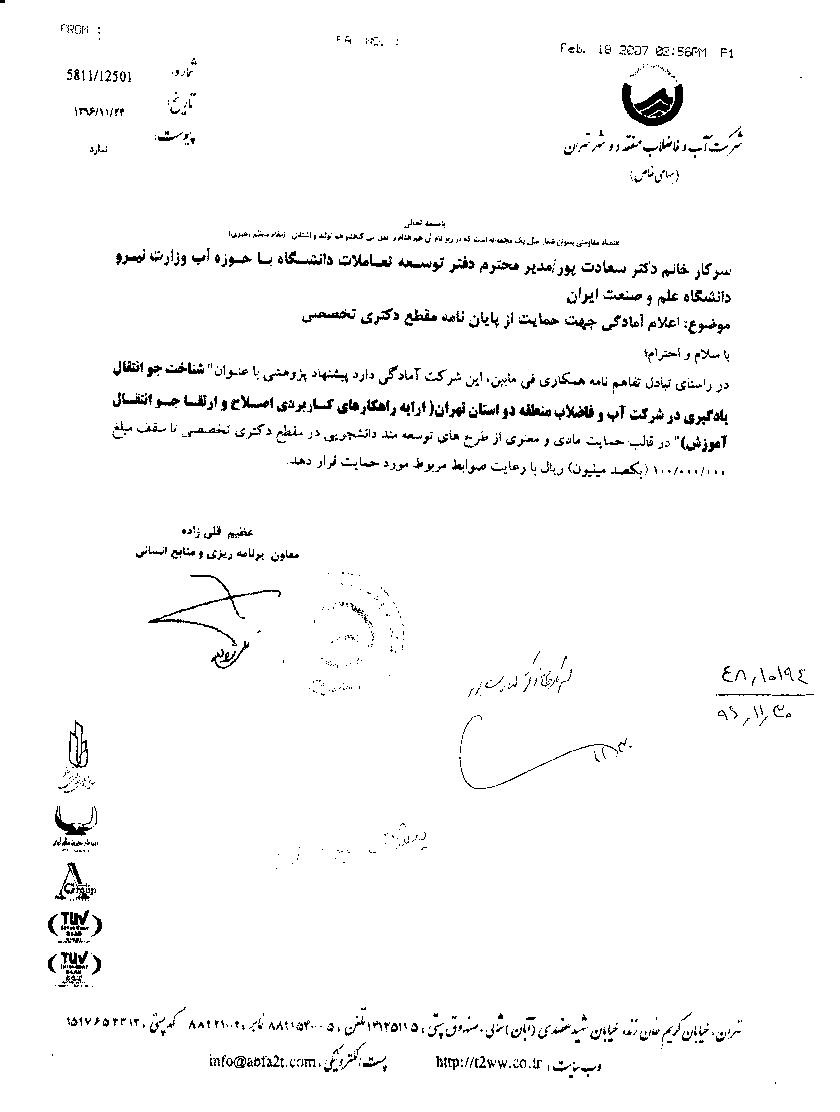 FROM :
FAX NO. :
Feb. 18 2007 02:56PM P1
شماره: 5811/12501
تاریخ: ۱۳۹۶/۱۱/۲۴
پیوست: ندارد
شرکت آب و فاضلاب منطقه دو شهر تهران
(سهامی خاص)
باسمه تعالی
سرکار خانم دکتر سعادت پور/مدیر محترم دفتر توسعه تعاملات دانشگاه با حوزه آب وزارت نیرو
دانشگاه علم و صنعت ایران
موضوع: اعلام آمادگی جهت حمایت از پایان نامه مقطع دکتری تخصصی
با سلام و احترام؛
در راستای تبادل تفاهم نامه همکاری فی مابین، این شرکت آمادگی دارد پیشنهاد پژوهشی با عنوان" شناخت جو انتقال
یادگیری در شرکت آب و فاضلاب منطقه دو استان تهران( ارایه راهکارهای کاربردی اصلاح و ارتقا جو انتقال
آموزش)" در قالب حمایت مادی و معنوی از طرح های توسعه مند دانشجویی در مقطع دکتری تخصصی تا سقف مبلغ
۱۰۰/۰۰۰/۰۰۰ (یکصد میلیون) ریال با رعایت ضوابط مربوط مورد حمایت قرار دهد.
عظیم قلی زاده
معاون برنامه ریزی و منابع انسانی
۴۸,۱۰۱۹۴
۹۶,۱۱,۳۰
A Group
TUV
TUV
تهران، خیابان کریم خان زند، خیابان شهید عضدی (آبان) شمالی، صندوق پستی: ۱۴۱۳۵۱۱۵ تلفن: ۵-۸۸۹۱۵۴۰۰ نمابر: ۸۸۹۲۱۰۰۲ کدپستی: ۱۵۹۷۶۵۳۳۱۳
وب سایت: http://t2ww.co.ir پست الکترونیکی: info@abfa2t.com